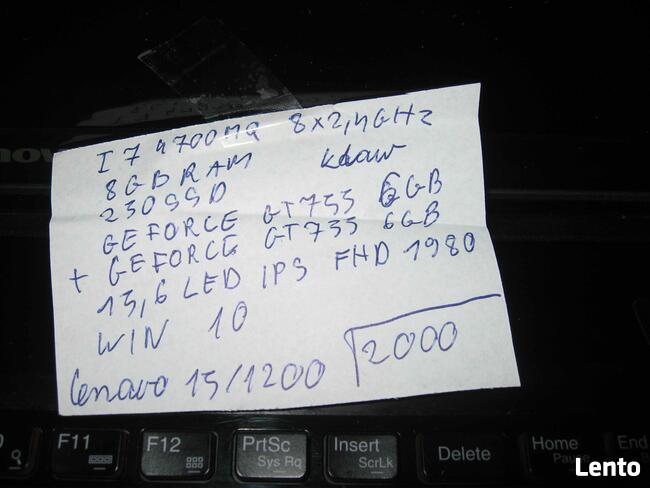 I7 4700MQ 8x2,4GHz
8GB RAM klaw
250SSD
GEFORCE GT755 6GB
+ GEFORCE GT755 6GB
15,6 LED IPS FHD 1980
WIN 10
Lenovo 15/1200 2000
F11 F12 PrtSc Insert Delete Home End
Sys Rq ScrLk
Lento